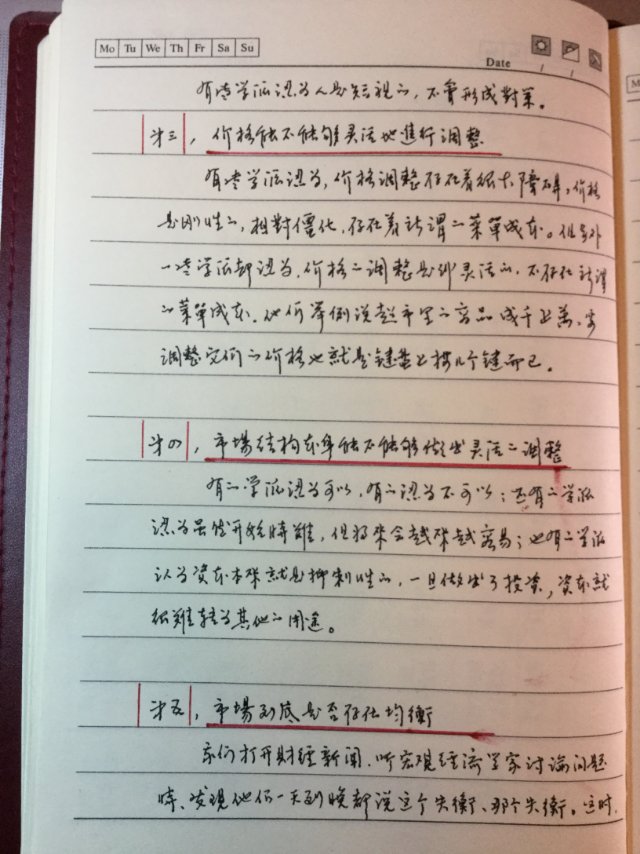 Mo Tu We Th Fr Sa Su
Date / /
有些学派认为人是短视的，不会形成對策。
第三，价格能不能够灵活地進行调整
有些学派認为，价格调整存在着很大障碍，价格
是刚性的，相對僵化，存在着所谓的菜單成本。但另外
一些学派却認为，价格的调整是很灵活的，不存在所谓
的菜單成本。他们举例说超市里的商品成千上萬，要
调整它们的价格也就是键盘上按几个键而已。
第四，市場结构本身能不能够做出灵活的调整
有的学派認为可以，有的認为不可以；还有的学派
認为虽然开始時難，但将来会越来越容易；也有的学派
认为资本本来就是抑制性的，一旦做出了投资，资本就
很難轉为其他的用途。
第五，市場到底是否存在均衡
我们打开财经新闻，听宏观经济学家讨论问题
時，发现他们一天到晚都说这个失衡、那个失衡。这时，